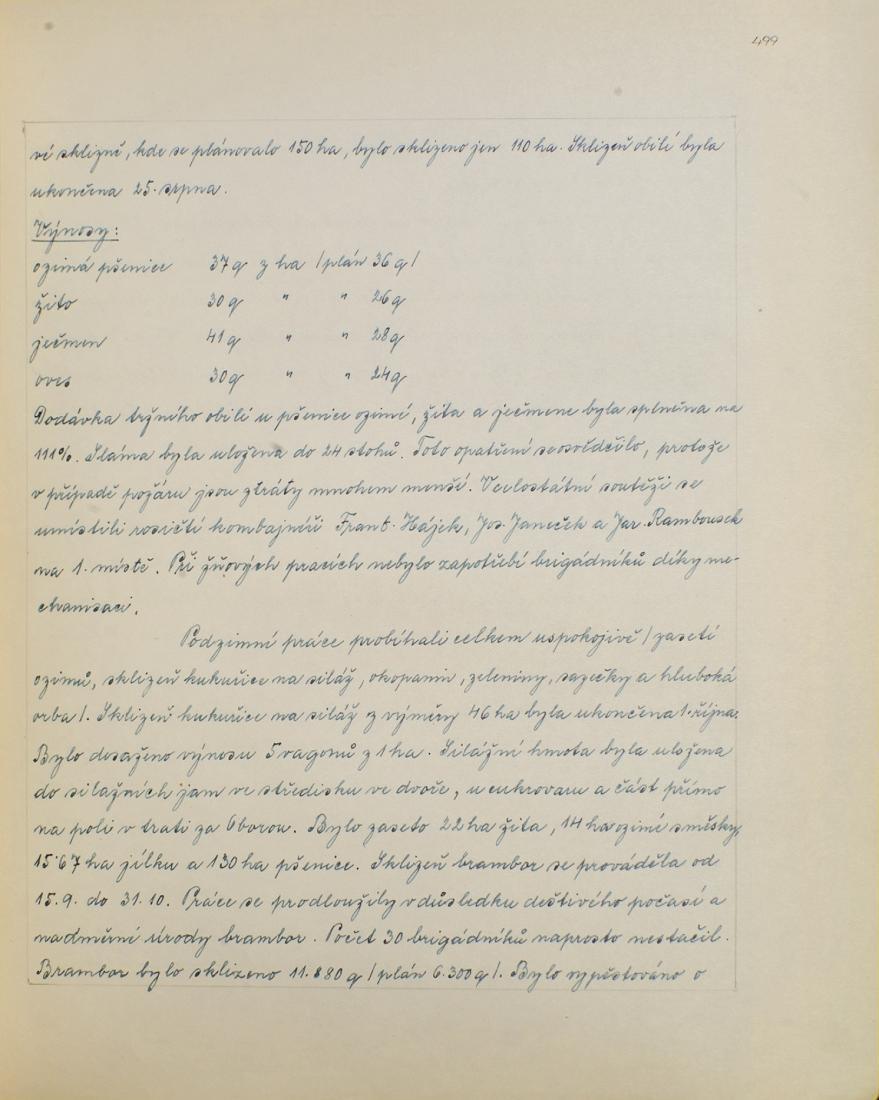 499
vé sklizně, kde se plánovalo 150 ha, bylo sklizeno jen 110 ha. Sklizeň obilí byla
ukončena 25. srpna.
Výnosy:
ozimá pšenice 37 q z ha /plán 36 q/
žito 30 q " " 26 q
ječmen 41 q " " 28 q
oves 30 q " " 24 q
Dodávka tržního obilí u pšenice ozimé, žita a ječmene byla splněna na
111%. Sláma byla uložena do 24 stohů. Toto opatření se osvědčilo, protože
v případě požáru jsou ztráty mnohem menší. V celostátní soutěži se
umístili rosičtí kombajnéři Frant. Hájek, Jos. Janeček a Jar. Rambousek
na 1. místě. Při žňových pracích nebylo zapotřebí brigádníků díky me-
chanisaci.
Podzimní práce probíhali celkem uspokojivě /zasetí
ozimů, sklizeň kukuřice na siláž, okopanin, zeleniny, sazečky a hluboká
orba/. Sklizeň kukuřice na siláž z výměry 46 ha byla ukončena 1. října.
Bylo dosaženo výnosu 5 vagonů z 1 ha. Silážní hmota byla uložena
do silážních jam ve středisku ve dvoře, u cukrovaru a část přímo
na poli v trati za Oborou. Bylo zaseto 22 ha žita, 14 ha ozimé směsky,
15'67 ha jílku a 130 ha pšenice. Sklizeň brambor se prováděla od
15. 9. do 31. 10. Práce se prodloužily v důsledku deštivého počasí a
nadměrné úrody brambor. Počet 30 brigádníků naprosto nestačil.
Brambor bylo sklizeno 11.880 q /plán 6.300 q/. Bylo vypěstováno o